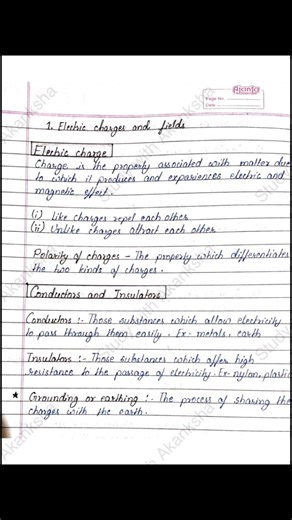 Ajanta
Page No.
Date
1. Electric charges and fields
Electric charge
Charge is the property associated with matter due
to which it produces and experiences electric and
magnetic effect.
(i) Like charges repel each other
(ii) Unlike charges attract each other
Polarity of charges - The property which differentiates
the two kinds of charges.
Conductors and Insulators
Conductors :- Those substances which allow electricity
to pass through them easily. Ex- metals, earth
Insulators :- Those substances which offer high
resistance to the passage of electricity. Ex- nylon, plastic
* Grounding or earthing :- The process of sharing the
charges with the earth.
Study with Akanksha